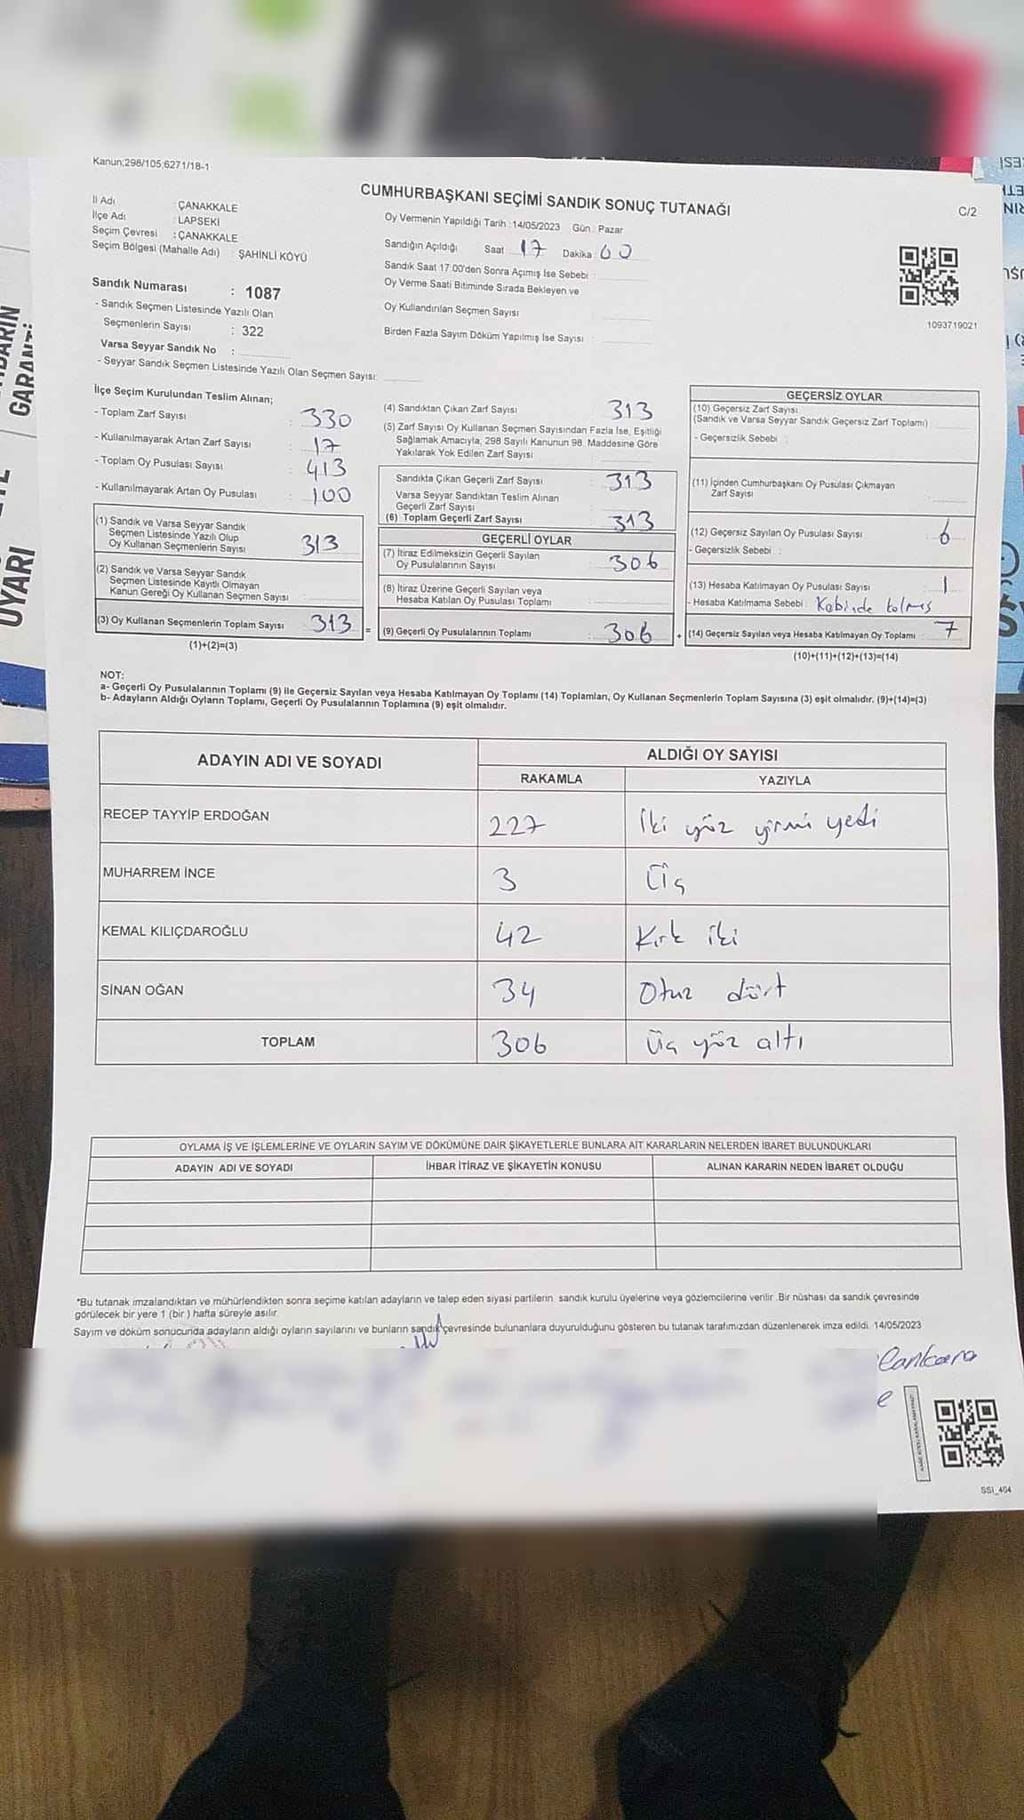 Kanun;298/105,6271/18-1
CUMHURBAŞKANI SEÇİMİ SANDIK SONUÇ TUTANAĞI
C/2
İl Adı : ÇANAKKALE
İlçe Adı : LAPSEKİ
Seçim Çevresi : ÇANAKKALE
Seçim Bölgesi (Mahalle Adı) : ŞAHİNLİ KÖYÜ
Sandık Numarası : 1087
- Sandık Seçmen Listesinde Yazılı Olan
Seçmenlerin Sayısı : 322
Varsa Seyyar Sandık No :
- Seyyar Sandık Seçmen Listesinde Yazılı Olan Seçmen Sayısı:
Oy Vermenin Yapıldığı Tarih :14/05/2023 Gün : Pazar
Sandığın Açıldığı Saat 17 Dakika 00
Sandık Saat 17:00'den Sonra Açımış İse Sebebi :
Oy Verme Saati Bitiminde Sırada Bekleyen ve
Oy Kullandırılan Seçmen Sayısı :
Birden Fazla Sayım Döküm Yapılmış İse Sayısı :
1093719021
İlçe Seçim Kurulundan Teslim Alınan;
- Toplam Zarf Sayısı : 330
- Kullanılmayarak Artan Zarf Sayısı : 17
- Toplam Oy Pusulası Sayısı : 413
- Kullanılmayarak Artan Oy Pusulası : 100
(1) Sandık ve Varsa Seyyar Sandık
Seçmen Listesinde Yazılı Olup
Oy Kullanan Seçmenlerin Sayısı : 313
(2) Sandık ve Varsa Seyyar Sandık
Seçmen Listesinde Kayıtlı Olmayan
Kanun Gereği Oy Kullanan Seçmen Sayısı :
(3) Oy Kullanan Seçmenlerin Toplam Sayısı : 313 =
(1)+(2)=(3)
(4) Sandıktan Çıkan Zarf Sayısı : 313
(5) Zarf Sayısı Oy Kullanan Seçmen Sayısından Fazla İse, Eşitliği
Sağlamak Amacıyla, 298 Sayılı Kanunun 98. Maddesine Göre
Yakılarak Yok Edilen Zarf Sayısı :
Sandıkta Çıkan Geçerli Zarf Sayısı : 313
Varsa Seyyar Sandıktan Teslim Alınan
Geçerli Zarf Sayısı :
(6) Toplam Geçerli Zarf Sayısı : 313
GEÇERLİ OYLAR
(7) İtiraz Edilmeksizin Geçerli Sayılan
Oy Pusulalarının Sayısı : 306
(8) İtiraz Üzerine Geçerli Sayılan veya
Hesaba Katılan Oy Pusulası Toplamı :
(9) Geçerli Oy Pusulalarının Toplamı : 306 +
GEÇERSİZ OYLAR
(10) Geçersiz Zarf Sayısı
(Sandık ve Varsa Seyyar Sandık Geçersiz Zarf Toplamı) :
- Geçersizlik Sebebi :
(11) İçinden Cumhurbaşkanı Oy Pusulası Çıkmayan
Zarf Sayısı :
(12) Geçersiz Sayılan Oy Pusulası Sayısı : 6
- Geçersizlik Sebebi :
(13) Hesaba Katılmayan Oy Pusulası Sayısı : 1
- Hesaba Katılmama Sebebi : Kabinde kalmış
(14) Geçersiz Sayılan veya Hesaba Katılmayan Oy Toplamı : 7
(10)+(11)+(12)+(13)=(14)
NOT:
a- Geçerli Oy Pusulalarının Toplamı (9) İle Geçersiz Sayılan veya Hesaba Katılmayan Oy Toplamı (14) Toplamları, Oy Kullanan Seçmenlerin Toplam Sayısına (3) eşit olmalıdır. (9)+(14)=(3)
b- Adayların Aldığı Oyların Toplamı, Geçerli Oy Pusulalarının Toplamına (9) eşit olmalıdır.
ADAYIN ADI VE SOYADI ALDIĞI OY SAYISI
RAKAMLA YAZIYLA
RECEP TAYYİP ERDOĞAN 227 İki yüz yirmi yedi
MUHARREM İNCE 3 Üç
KEMAL KILIÇDAROĞLU 42 Kırk iki
SİNAN OĞAN 34 Otuz dört
TOPLAM 306 Üç yüz altı
OYLAMA İŞ VE İŞLEMLERİNE VE OYLARIN SAYIM VE DÖKÜMÜNE DAİR ŞİKAYETLERLE BUNLARA AİT KARARLARIN NELERDEN İBARET BULUNDUKLARI
ADAYIN ADI VE SOYADI İHBAR İTİRAZ VE ŞİKAYETİN KONUSU ALINAN KARARIN NEDEN İBARET OLDUĞU
*Bu tutanak imzalandıktan ve mühürlendikten sonra seçime katılan adayların ve talep eden siyasi partilerin sandık kurulu üyelerine veya gözlemcilerine verilir .Bir nüshası da sandık çevresinde
görülecek bir yere 1 (bir ) hafta süreyle asılır.
Sayım ve döküm sonucunda adayların aldığı oyların sayılarını ve bunların sandık çevresinde bulunanlara duyurulduğunu gösteren bu tutanak tarafımızdan düzenlenerek imza edildi. 14/05/2023
SSI_404
GARANTİ
UYARI